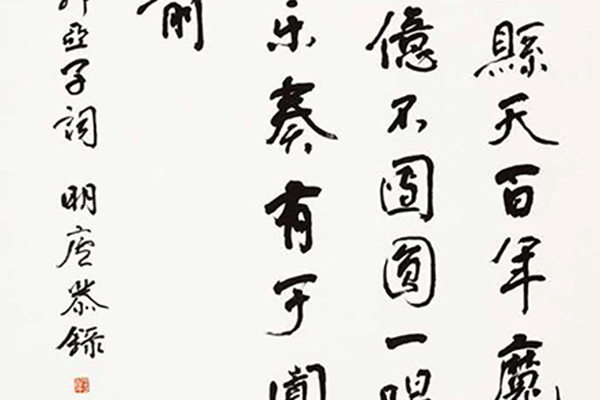 縣天百年魔
億不團圓一唱
乐奏有于闐
前
亞子詞 明 恭錄